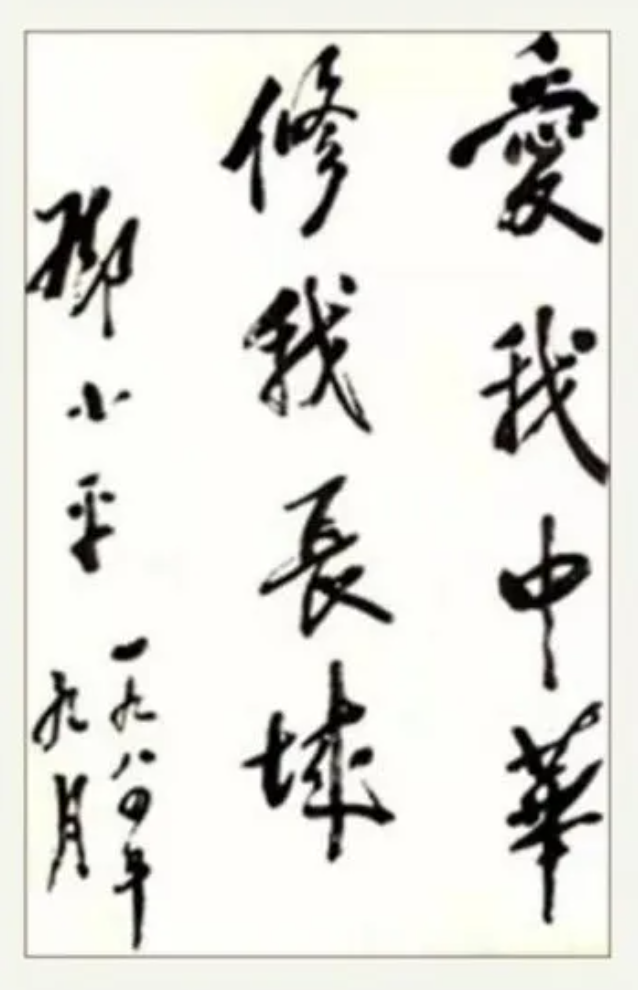 愛我中華
修我長城
鄧小平
一九八四年
九月